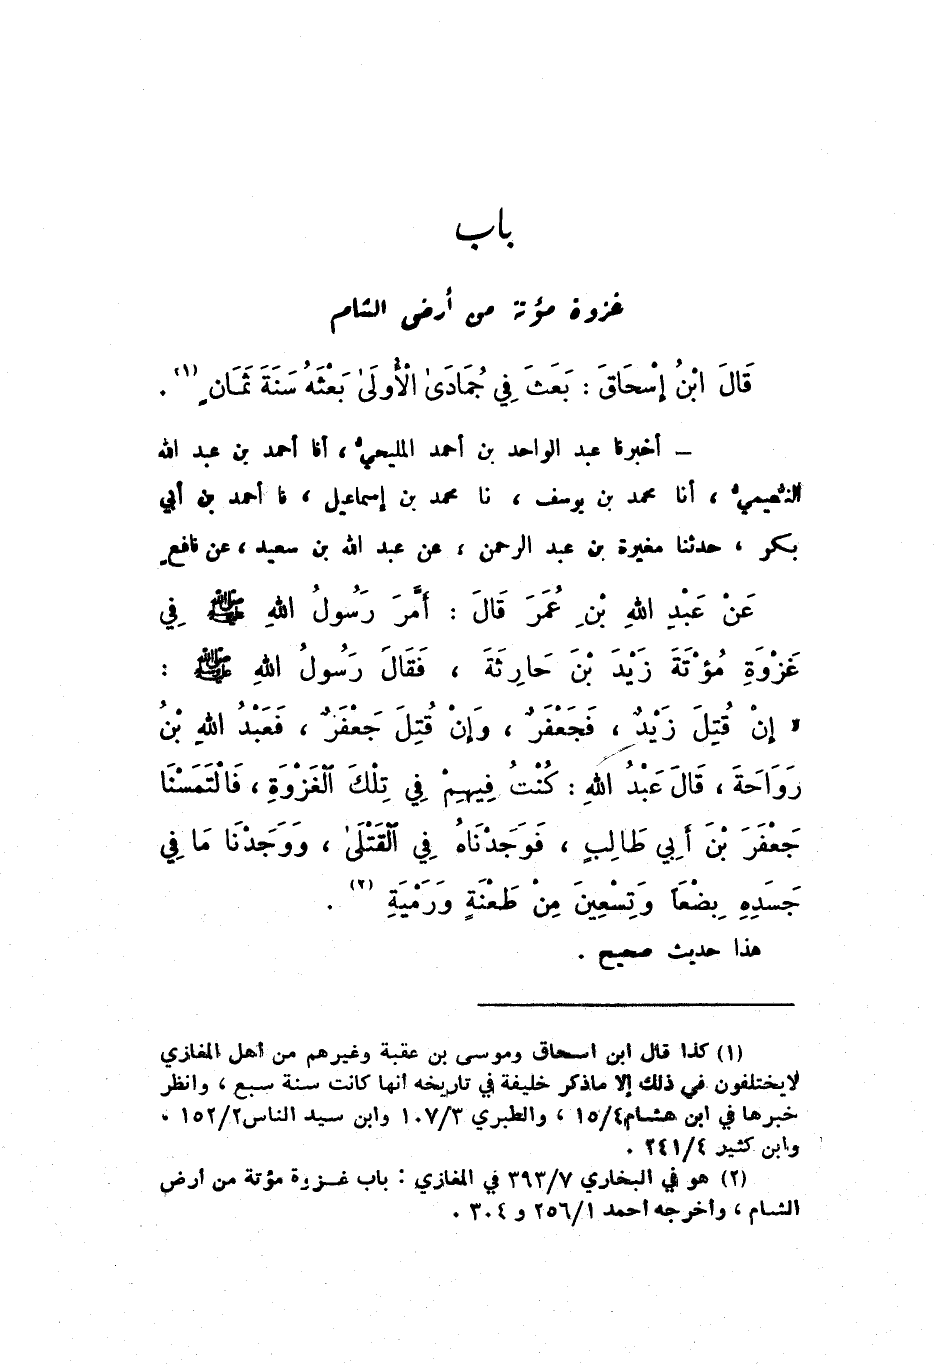 باب
غزوة مؤتة من أرض الشام
قَالَ ابْنُ إِسْحَاقَ : بَعَثَ فِي جُمَادَىٰ الْأُولَىٰ بَعْثَهُ سَنَةَ ثَمَانٍ (١) .
ـ أخبرنا عبد الواحد بن أحمد المليحيُّ ، أنا أحمد بن عبد الله
النعيميُّ ، أنا محمد بن يوسف ، نا محمد بن إسماعيل ، نا أحمد بن أبي
بكر ، حدثنا مغيرة بن عبد الرحمن ، عن عبد الله بن سعيد ، عن نافعٍ
عَنْ عَبْدِ اللهِ بْنِ عُمَرَ قَالَ : أَمَّرَ رَسُولُ اللهِ ﷺ فِي
غَزْوَةِ مُؤْتَةَ زَيْدَ بْنَ حَارِثَةَ ، فَقَالَ رَسُولُ اللهِ ﷺ :
« إِنْ قُتِلَ زَيْدٌ ، فَجَعْفَرٌ ، وَإِنْ قُتِلَ جَعْفَرٌ ، فَعَبْدُ اللهِ بْنُ
رَوَاحَةَ ، قَالَ عَبْدُ اللهِ : كُنْتُ فِيهِمْ فِي تِلْكَ الْغَزْوَةِ ، فَالْتَمَسْنَا
جَعْفَرَ بْنَ أَبِي طَالِبٍ ، فَوَجَدْنَاهُ فِي الْقَتْلَىٰ ، وَوَجَدْنَا مَا فِي
جَسَدِهِ بِضْعَاً وَتِسْعِينَ مِنْ طَعْنَةٍ وَرَمْيَةٍ (٢) .
هذا حديث صحيح .
(١) كذا قال ابن اسحاق وموسى بن عقبة وغيرهم من أهل المغازي
لايختلفون في ذلك إلا ماذكر خليفة في تاريخه أنها كانت سنة سبع ، وانظر
خبرها في ابن هشام ١٥/٤ ، والطبري ١٠٧/٣ وابن سيد الناس ١٥٢/٢ ،
وابن كثير ٢٤١/٤ .
(٢) هو في البخاري ٣٩٣/٧ في المغازي : باب غـزوة مؤتة من أرض
الشام ، وأخرجه أحمد ٢٥٦/١ و ٣٠٤ .